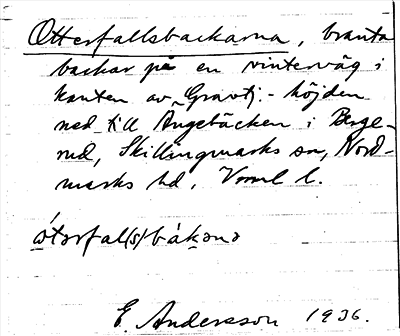 Otterfallsbackarna, branta
backar på en vinterväg i
kanten av „Gravtj.-höjden
ned till Ängebäcken i Berge-
rud, Skillingmarks sn, Nord-
marks hd, Vrml l.
E. Andersson 1936.